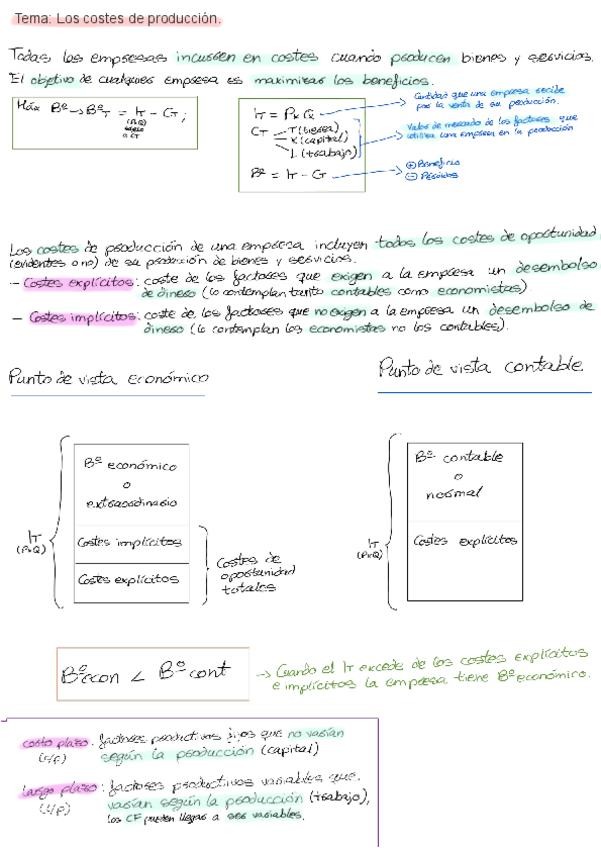 Tema: Los costes de producción.
Todas las empresas incurren en costes cuando producen bienes y servicios.
El objetivo de cualquier empresa es maximizar los beneficios.
Máx Bº → BºT = IT - CT;
(PxQ)
IT = P x Q
Cantidad que una empresa recibe
por la venta de su producción.
CT
T (tierra)
K (capital)
L (trabajo)
Valor de mercado de los factores que
utiliza una empresa en la producción
Bº = IT - CT
⊕ Beneficio
⊖ Pérdidas
Los costes de producción de una empresa incluyen todos los costes de oportunidad
(evidentes o no) de su producción de bienes y servicios.
- Costes explícitos: coste de los factores que exigen a la empresa un desembolso
de dinero (lo contemplan tanto contables como economistas)
- Costes implícitos: coste de los factores que no exigen a la empresa un desembolso de
dinero (lo contemplan los economistas no los contables).
Punto de vista económico
Punto de vista contable.
Bº económico
o
extraordinario
Costes implícitos
Costes explícitos
IT
(PxQ)
Costes de
oportunidad
totales
Bº contable
o
normal
Costes explícitos
IT
(PxQ)
Bºecon < Bºcont
→ Cuando el IT excede de los costes explícitos
e implícitos la empresa tiene Bº económico.
corto plazo: factores productivos fijos que no varían
(c/p) según la producción (capital)
largo plazo: factores productivos variables que
(l/p) varían según la producción (trabajo),
los CF pueden llegar a ser variables.